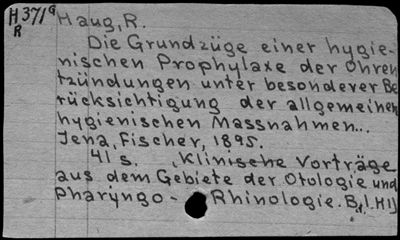 H371G Haug, R.
R
Die Grundzüge einer hygie-
nischen Prophylaxe der Ohren
tzündungen unter besonderer Be
rücksichtigung der allgemeinen
hygienischen Massnahmen...
Jena, Fischer, 1895.
41 s. (Klinische Vorträge
aus dem Gebiete der Otologie und
Pharyngo- Rhinologie. Bd.1.H1)